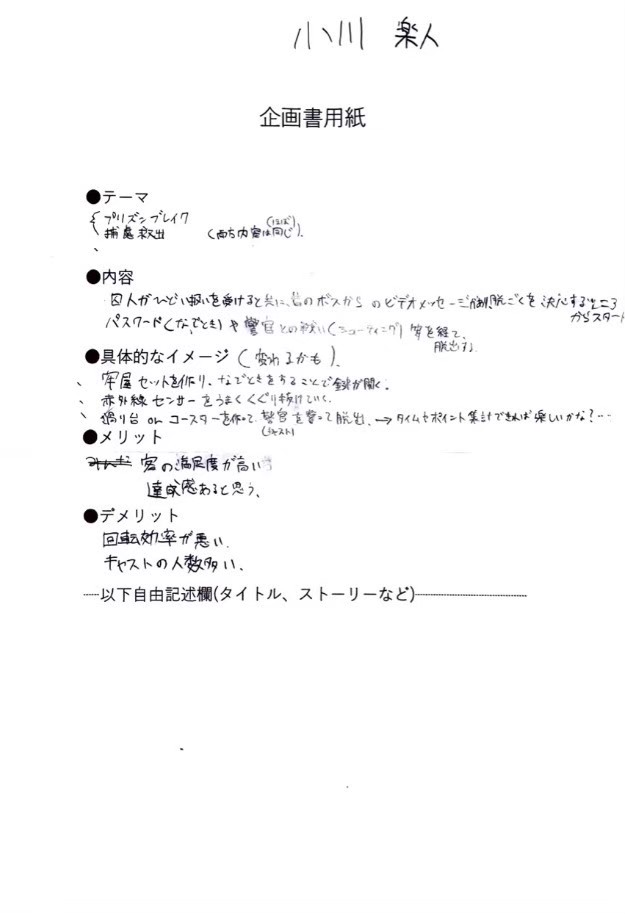 小川 楽人
企画書用紙
●テーマ
プリズンブレイク
捕虜救出 (両方内容は(ほぼ)同じ).
●内容
囚人がひどい扱いを受けると共に、昔のボスからのビデオメッセージで脱ごくを決心するところからスタート
パスワード(なぞとき)や警官との戦い(シューティング)等を経て、脱出する.
●具体的なイメージ(変わるかも).
、牢屋セットを作り、なぞときをすることで鍵が開く.
、赤外線センサーをうまくくぐり抜けていく.
、滑り台 or コースターを作って、警官(キャスト)を撃って脱出. →タイムやポイント集計できれば楽しいかな?…
●メリット
客の満足度が高い
達成感あると思う、
●デメリット
回転効率が悪い.
キャストの人数多い、
以下自由記述欄(タイトル、ストーリーなど)